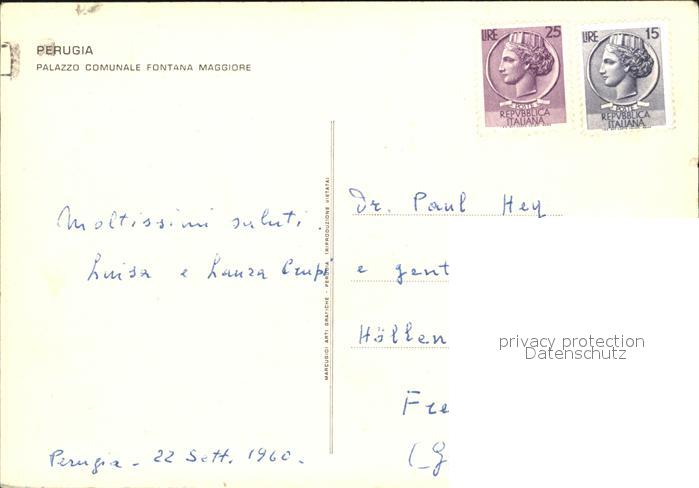 PERUGIA
PALAZZO COMUNALE FONTANA MAGGIORE
LIRE 25
POSTE
REPVBBLICA
ITALIANA
LIRE 15
POSTE
REPVBBLICA
ITALIANA
Moltissimi saluti.
Luisa e Laura
Perugia - 22 Sett. 1960.
MARCUGIGI ARTI GRAFICHE - PERUGIA (RIPRODUZIONE VIETATA)
Dr. Paul Hey
e gent
Höllen
Fre
(G
privacy protection
Datenschutz